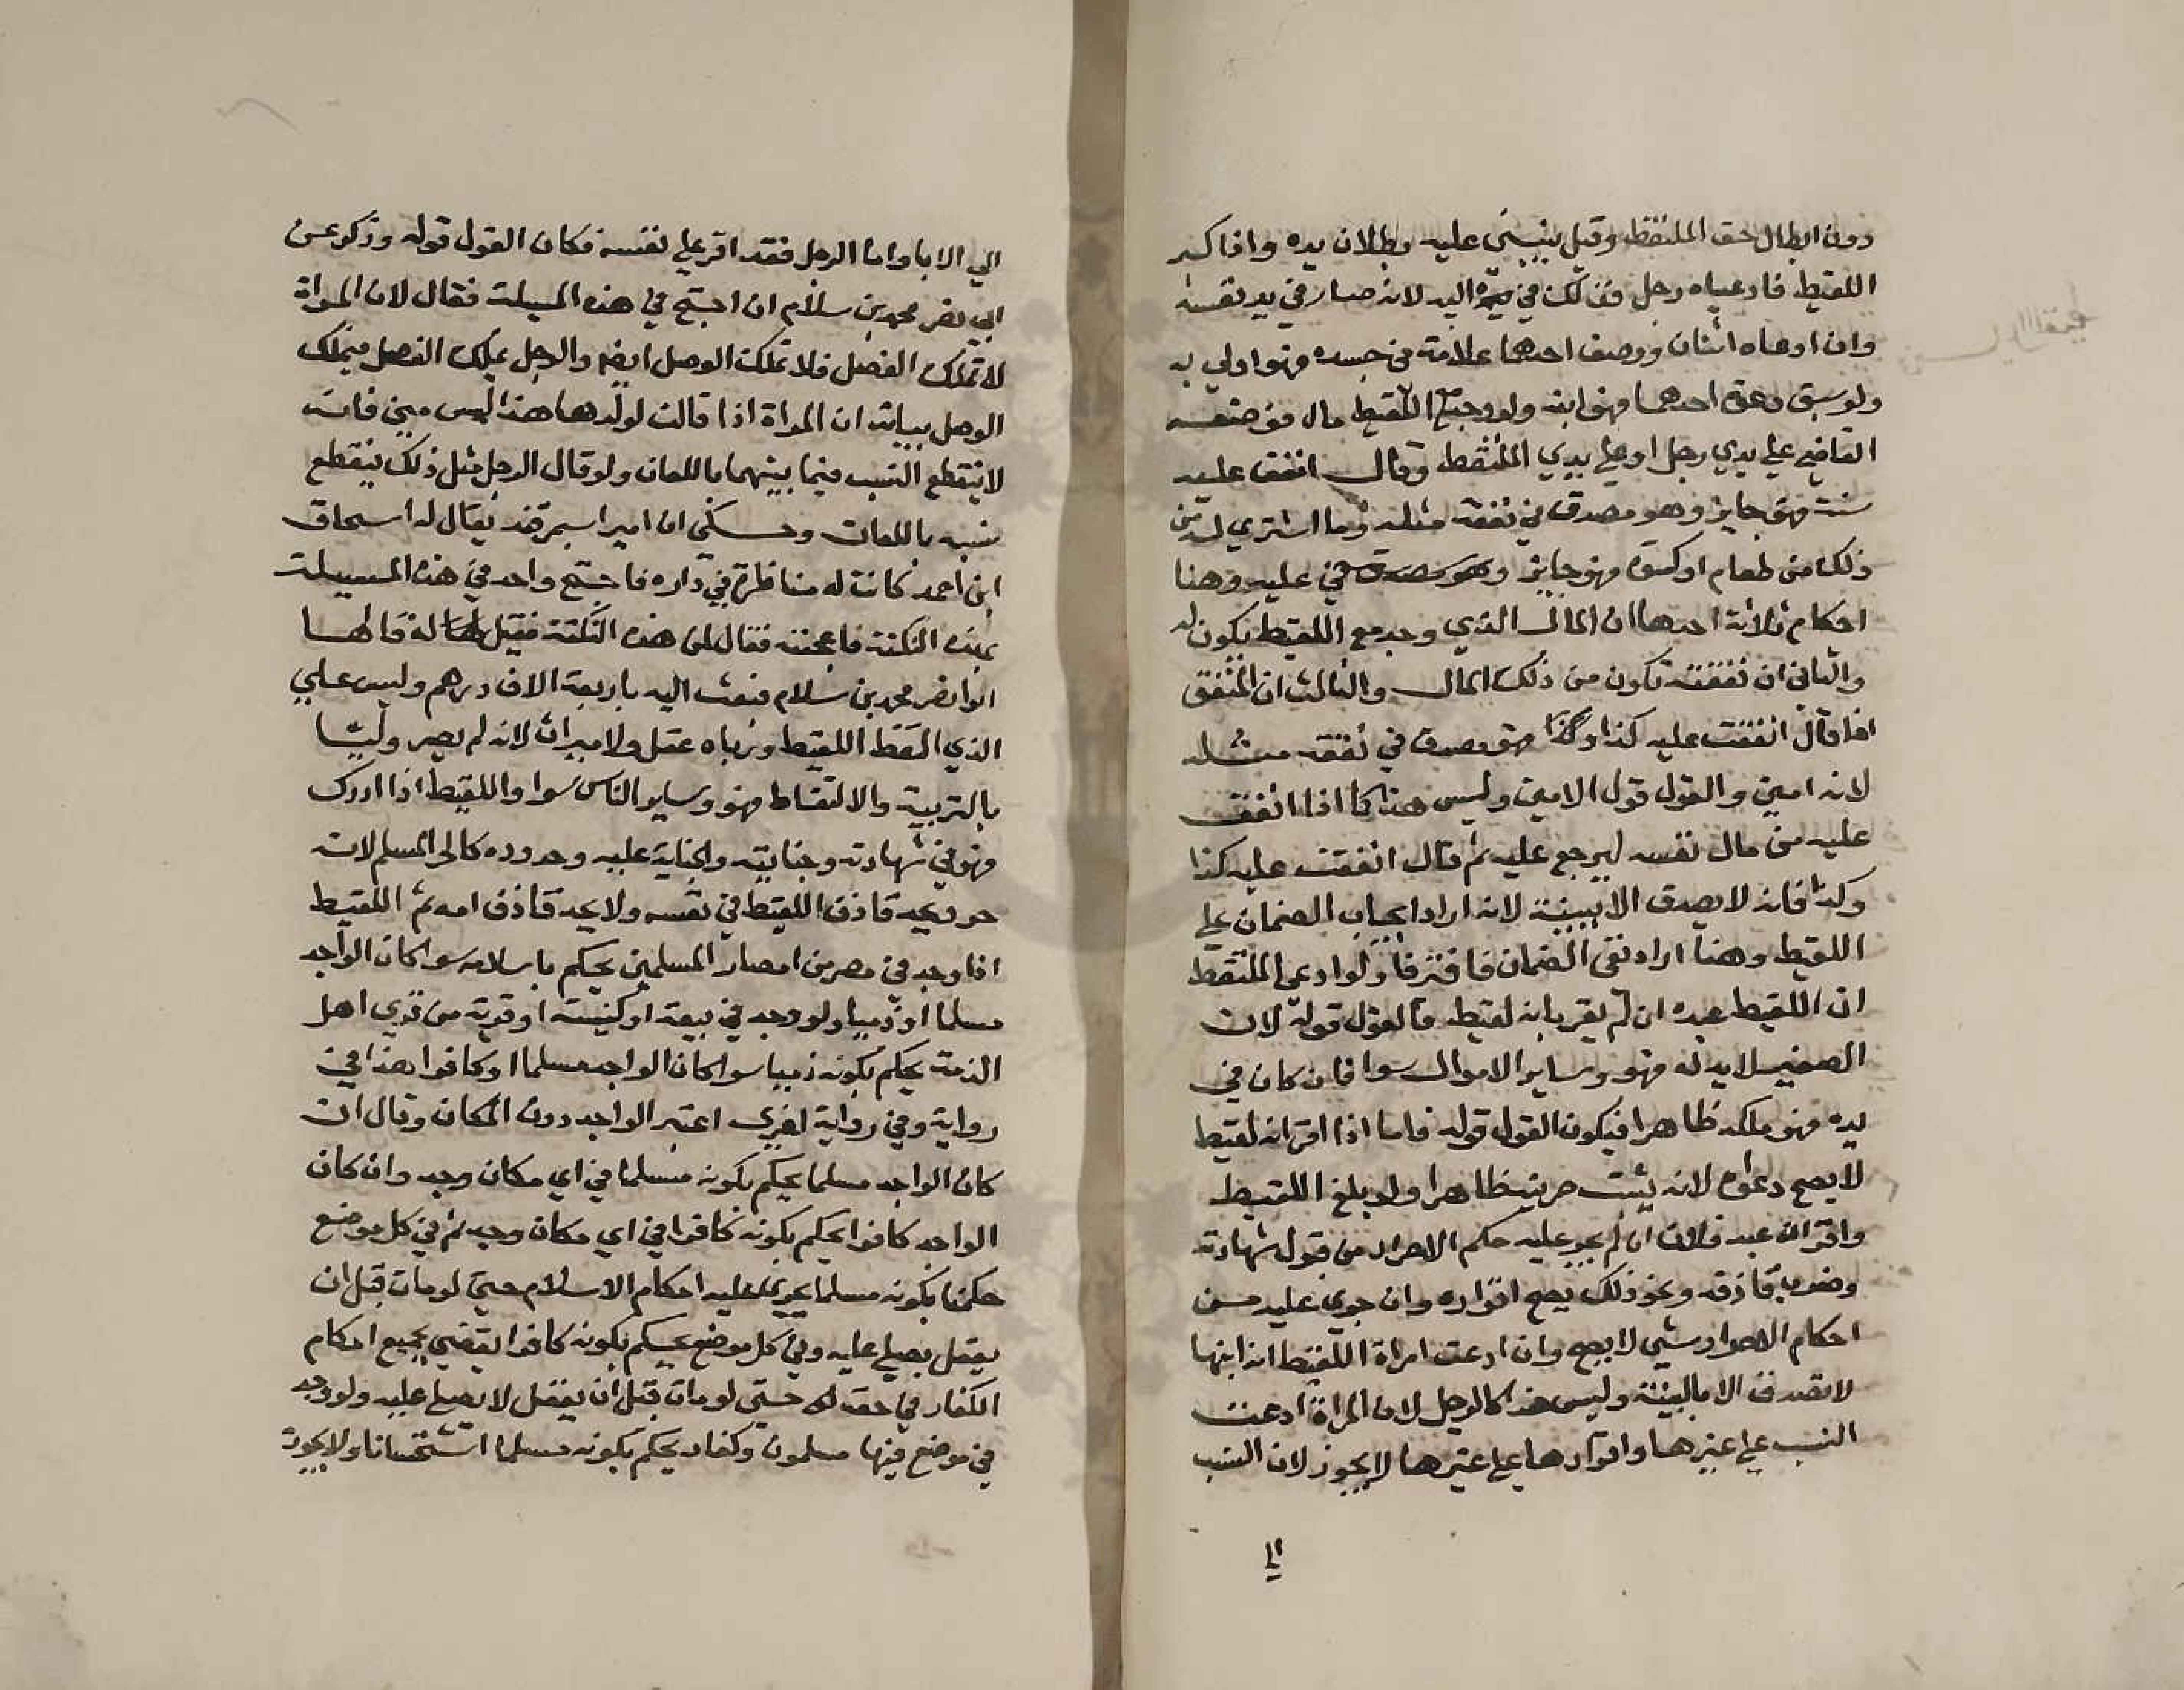 دون ابطال حق الملتقط وقيل ينبني عليه بطلان يده واذا كبر
اللقيط فادعياه رجل فذلك في يده اليه لانه صار في يد نفسه
وان ادعاه اثنان ووصف احدهما علامة في جسده فهو اولي به
ولو سبق دعوة احدهما فهو ابنه ولو وجد مع اللقيط مال فوضعه
القاضي علي يدي رجل او علي يدي الملتقط وقال انفق عليه
منه فهو جايز وهو مصدق في نفقة مثله وما اشتري له من
ذلك من طعام او كسوة فهو جايز عليه وهنا
احكام ثلاثة احدها ان المال الذي وجد مع اللقيط يكون له
والثاني ان نفقته تكون من ذلك المال والثالث ان المنفق
اذا قال انفقت عليه كذا وكذا فهو مصدق في نفقة مثله
لانه امين والقول قول الامين وليس هذا كما اذا انفق
عليه من مال نفسه ليرجع عليه ثم قال انفقت عليه كذا
وكذا فانه لا يصدق الا ببينة لانه اراد ايجاب الضمان علي
اللقيط وهنا اراد نفي الضمان فافترقا ولو ادعي الملتقط
ان اللقيط عبده ان لم يقر بانه لقيط فالقول قوله لان
الصغير لا يد له فهو وساير الاموال سوا فان كان في
يده فهو ملكه ظاهرا فيكون القول قوله فاما اذا اقر انه لقيط
لا يصح دعواه لانه يثبت حريته ظاهرا ولو بلغ اللقيط
واقر انه عبد فلان ان لم يجر عليه حكم الاحرار من قبول شهادته
وضرب قاذفه ونحو ذلك يصح اقراره وان جري عليه من
احكام الاحرار شي لا يصح وان ادعت امراة اللقيط انه ابنها
لا تصدق الا بالبينة وليس هذا كالرجل لان المراة ادعت
النسب علي غيرها واقرارها علي غيرها لا يجوز لان النسب
الي
الي الابا واما الرجل فقد اقر علي نفسه فكان القول قوله وذكر عن
ابي نصر محمد بن سلام ان احتج في هذه المسيلة فقال لان المراة
لا تملك الفصل فلا تملك الوصل ايضا والرجل يملك الفصل فيملك
الوصل بيانه ان المراة اذا قالت لولدها هذا ليس مني فانه
لا ينقطع النسب فيما بينهما باللعان ولو قال الرجل مثل ذلك ينقطع
نسبه باللعان وحكي ان امير اسمرقند يقال له اسحاق
ابن احمد كانت له مناظرة في داره فاحتج واحد في هذه المسيلة
بهذه النكتة فاعجبته فقال لمن هذه النكتة فقيل له قالها
ابو نصر محمد بن سلام فبعث اليه باربعة الاف درهم وليس علي
الذي التقط اللقيط ورباه عقل ولا ميراث لانه لم يصر وليا
بالتربية والالتقاط فهو وساير الناس سوا واللقيط اذا ادرك
فهو في شهادته وجنايته والجناية عليه وحدوده كالحر المسلم لانه
حر ويحد قاذف اللقيط في نفسه ولا يحد قاذف امه ثم اللقيط
اذا وجد في مصر من امصار المسلمين يحكم باسلامه سوا كان الواجد
مسلما او ذميا ولو وجد في بيعة او كنيسة او قرية من قري اهل
الذمة يحكم بكونه ذميا سوا كان الواجد مسلما او كافرا هذا في
رواية وفي رواية اخري اعتبر الواجد دون المكان وقال ان
كان الواجد مسلما يحكم بكونه مسلما في اي مكان وجد وان كان
الواجد كافرا يحكم بكونه كافرا في اي مكان وجد ثم في كل موضع
حكمنا بكونه مسلما يجري عليه احكام الاسلام حتي لو مات قبل ان
يعقل يصلي عليه وفي كل موضع يحكم بكونه كافرا يقضي بجميع احكام
الكفار في حقه حتي لو مات قبل ان يعقل لا يصلي عليه ولو وجد
في موضع فيها مسلمون وكفار يحكم بكونه مسلما استحسانا ولا يجوز